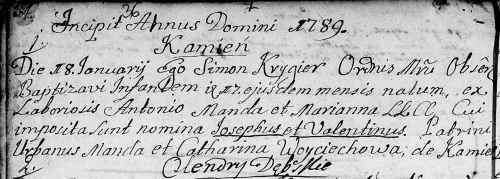 Incipit Annus Domini 1789.
1.
Kamien
Die 18. Ianuarij Ego Simon Krygier Ordnis Mrũ Obsẽr
Baptizavi Infandem 17. ejusdem mensis natum, ex
Laboriosis Antonio Manda et Marianna LLCC, Cui
imposita sunt nomina Josephus et Valentinus. Patrini
Urbanus Manda et Catharina Woyciechowa, de Kamień
2.